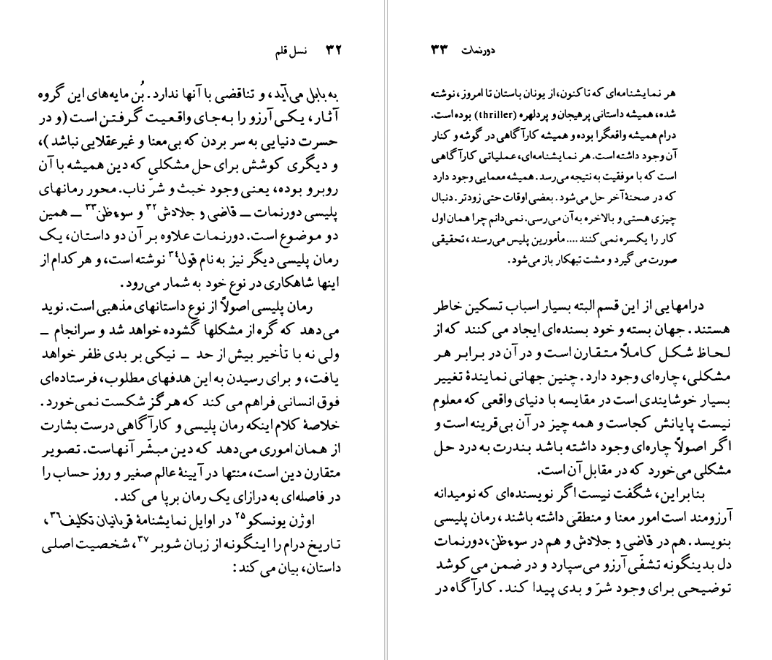 ۳۲ نسل قلم
به بابل می‌آید، و تناقضی با آنها ندارد. بُن مایه‌های این گروه
آثار، یکی آرزو را به‌جای واقعیت گرفتن است (و در
حسرت دنیایی به سر بردن که بی‌معنا و غیرعقلایی نباشد)،
و دیگری کوشش برای حل مشکلی که دین همیشه با آن
روبرو بوده، یعنی وجود خبث و شرّ ناب. محور رمانهای
پلیسی دورنمات ــ قاضی و جلادش۳۲ و سوءظن۳۳ ــ همین
دو موضوع است. دورنمات علاوه بر آن دو داستان، یک
رمان پلیسی دیگر نیز به نام قول۳۴ نوشته است، و هرکدام از
اینها شاهکاری در نوع خود به شمار می‌رود.
رمان پلیسی اصولاً از نوع داستانهای مذهبی است. نوید
می‌دهد که گره از مشکلها گشوده خواهد شد و سرانجام ــ
ولی نه با تأخیر بیش از حد ــ نیکی بر بدی ظفر خواهد
یافت، و برای رسیدن به این هدفهای مطلوب، فرستاده‌ای
فوق انسانی فراهم می‌کند که هرگز شکست نمی‌خورد.
خلاصهٔ کلام اینکه رمان پلیسی و کارآگاهی درست بشارت
از همان اموری می‌دهد که دین مبشّر آنهاست. تصویر
متقارن دین است، منتها در آیینهٔ عالم صغیر و روز حساب را
در فاصله‌ای به درازای یک رمان برپا می‌کند.
اوژن یونسکو۳۵ در اوایل نمایشنامهٔ قربانیان تکلیف۳۶،
تاریخ درام را اینگونه از زبان شوبر۳۷، شخصیت اصلی
داستان، بیان می‌کند:
دورنمات ۳۳
هر نمایشنامه‌ای که تاکنون، از یونان باستان تا امروز، نوشته
شده، همیشه داستانی پرهیجان و پردلهره (thriller) بوده است.
درام همیشه واقعگرا بوده و همیشه کارآگاهی در گوشه و کنار
آن وجود داشته است. هر نمایشنامه‌ای، عملیاتی کارآگاهی
است که با موفقیت به نتیجه می‌رسد. همیشه معمایی وجود دارد
که در صحنهٔ آخر حل می‌شود. بعضی اوقات حتی زودتر. دنبال
چیزی هستی و بالاخره به آن می‌رسی. نمی‌دانم چرا همان اول
کار را یکسره نمی‌کنند .... مأمورین پلیس می‌رسند، تحقیقی
صورت می‌گیرد و مشت تبهکار باز می‌شود.
درامهایی از این قسم البته بسیار اسباب تسکین خاطر
هستند. جهان بسته و خود بسنده‌ای ایجاد می‌کنند که از
لحاظ شکل کاملاً متقارن است و در آن در برابر هر
مشکلی، چاره‌ای وجود دارد. چنین جهانی نمایندهٔ تغییر
بسیار خوشایندی است در مقایسه با دنیای واقعی که معلوم
نیست پایانش کجاست و همه چیز در آن بی‌قرینه است و
اگر اصولاً چاره‌ای وجود داشته باشد بندرت به درد حل
مشکلی می‌خورد که در مقابل آن است.
بنابراین، شگفت نیست اگر نویسنده‌ای که نومیدانه
آرزومند است امور معنا و منطقی داشته باشند، رمان پلیسی
بنویسد. هم در قاضی و جلادش و هم در سوءظن، دورنمات
دل بدینگونه تشفّی آرزو می‌سپارد و در ضمن می‌کوشد
توضیحی برای وجود شرّ و بدی پیدا کند. کارآگاه در